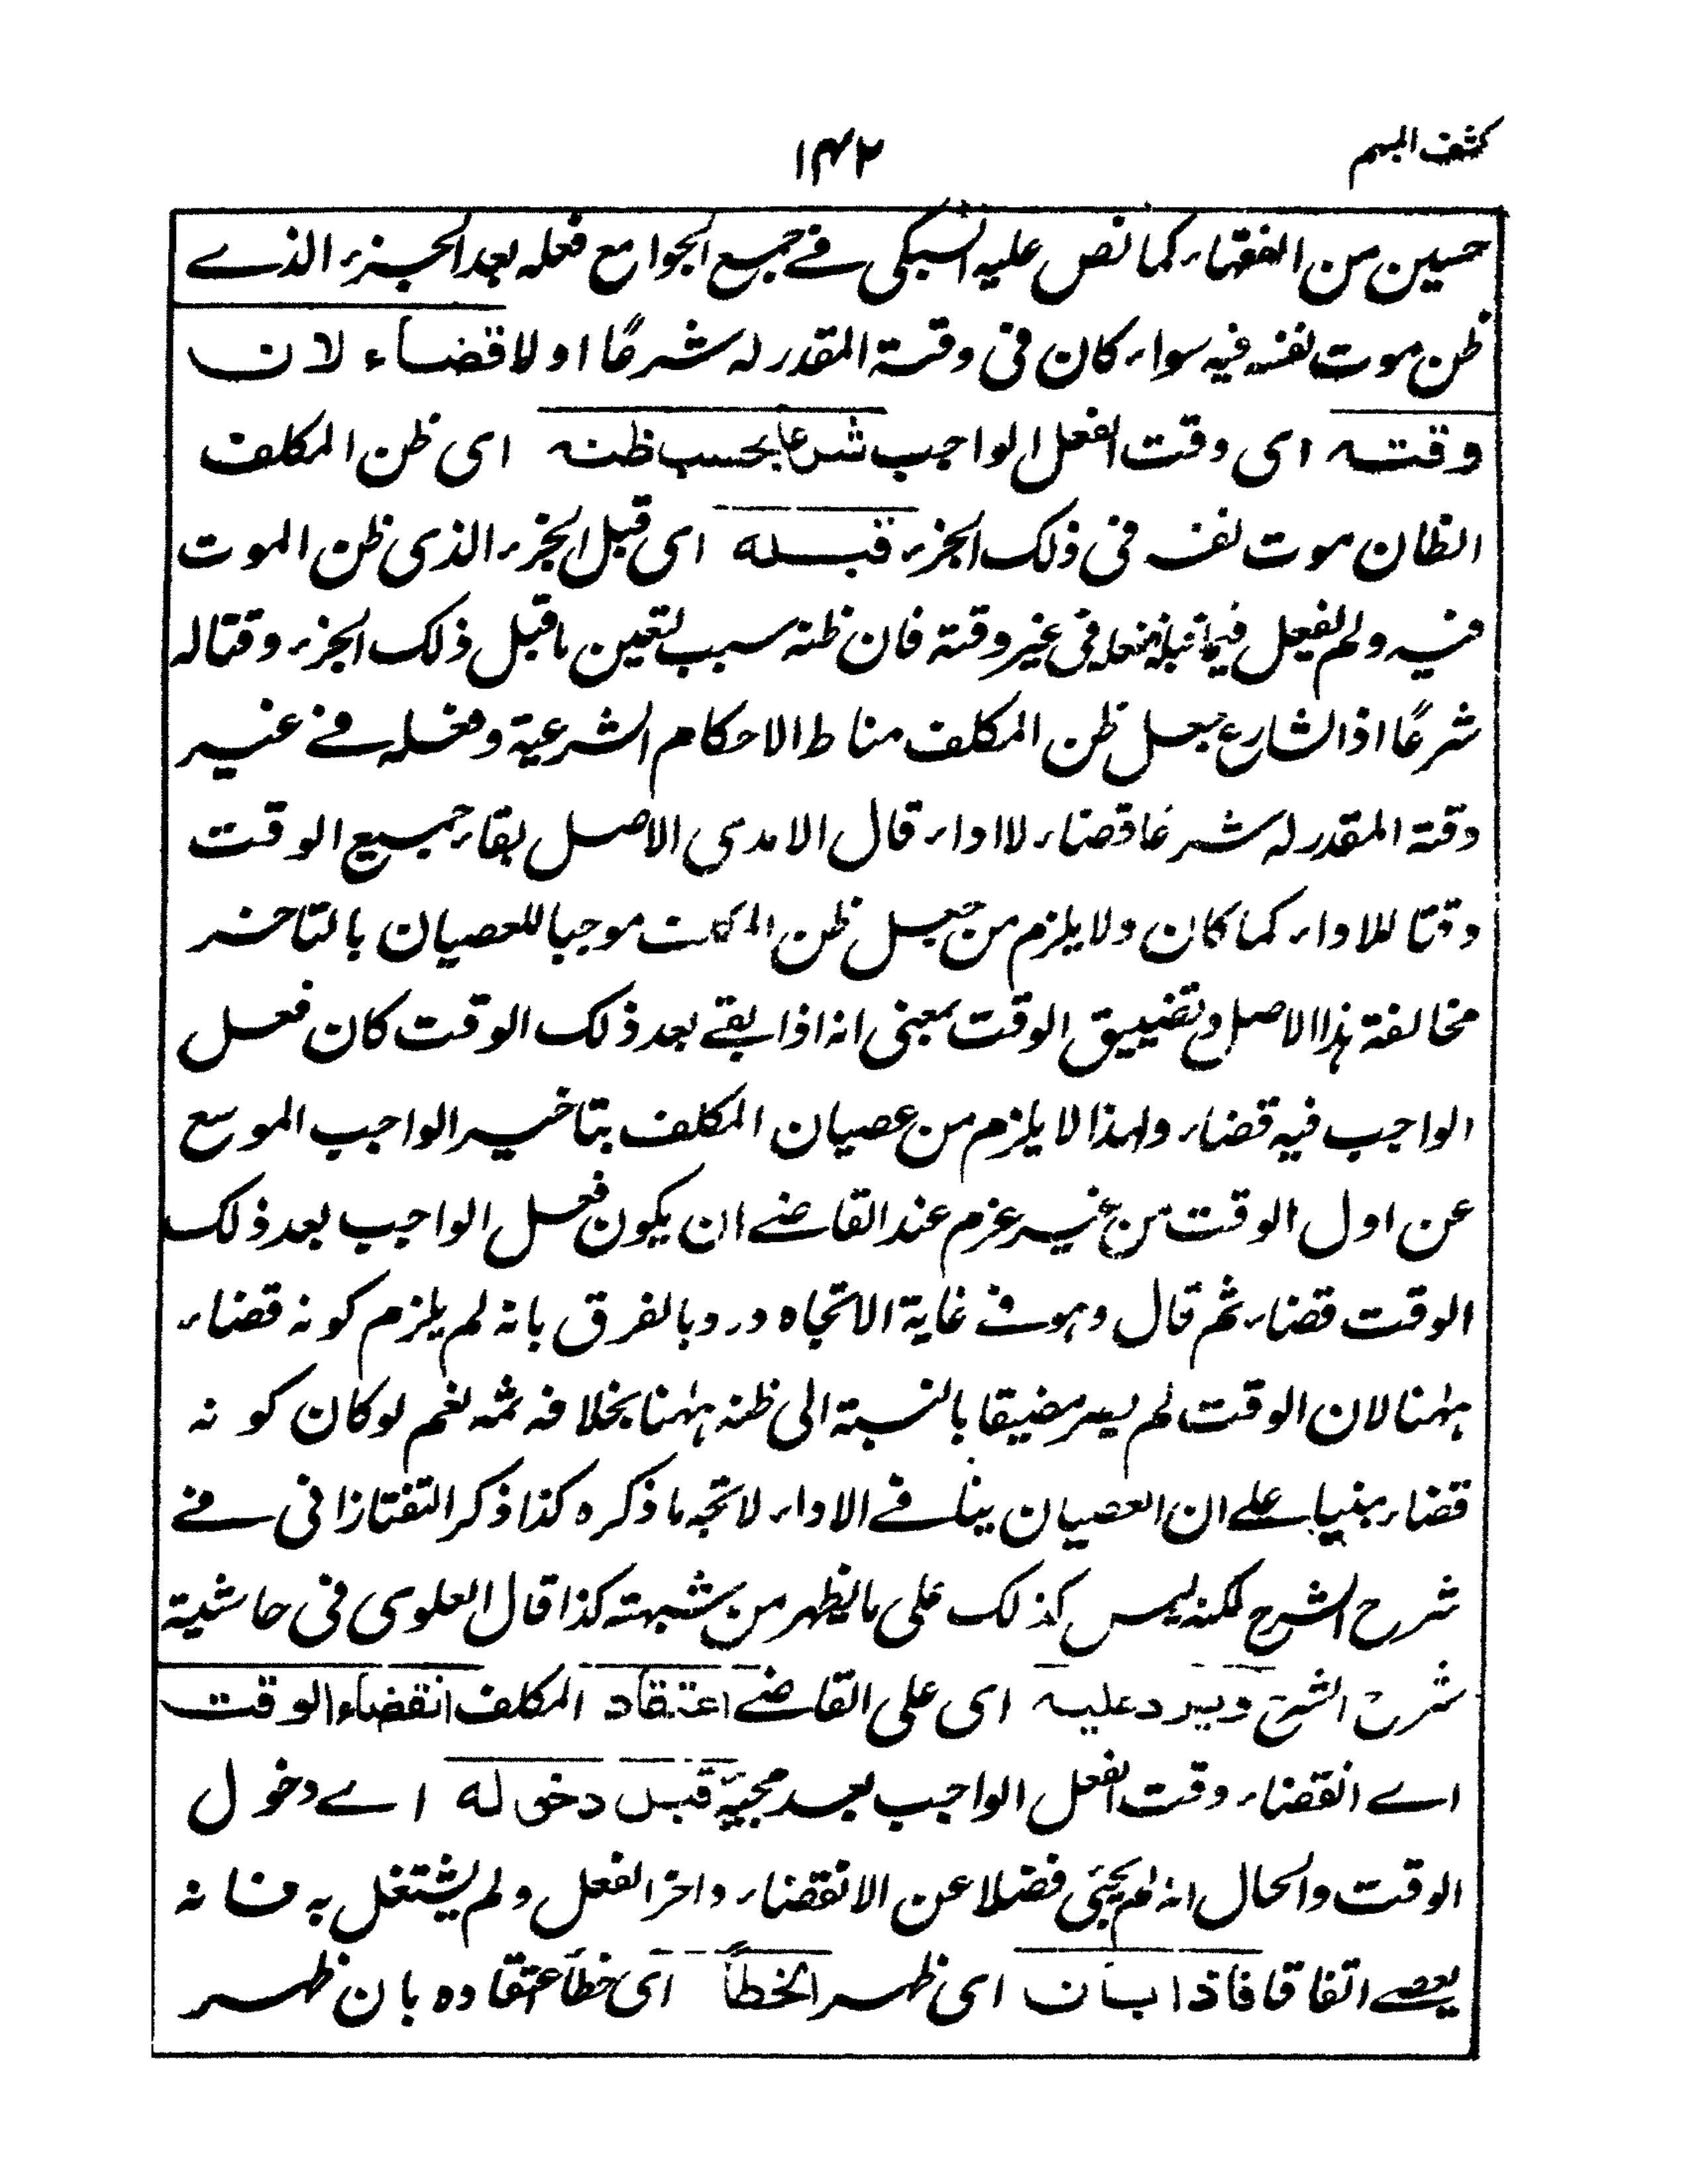 كشف المبهم
١٤٢
حسين من الفقهاء كما نص عليه السبكى فے جمع الجوامع فعله بعد الجزء الذے
ظن موت نفسه فيه سواء كان فى وقتة المقدر له شرعًا او لا قضاء لان
وقته اى وقت الفعل الواجب شرعا بحسب ظنه اى ظن المكلف
الظان موت نفسه فى ذلك الجزء قبله اى قبل الجزء الذى ظن الموت
فيه ولم يفعل فيما قبله ففعله فى غير وقتة فان ظنه سبب لتعين ما قبل ذلك الجزء وقتا له
شرعًا اذ الشارع جعل ظن المكلف مناط الاحكام الشرعية وفعله فے غير
وقتة المقدر له شرعا قضاء لا اداء قال الامدى الاصل بقاء جميع الوقت
وقتا للاداء كما كان ولا يلزم من جعل ظن موجبا للعصيان بالتاخر
مخالفة هذا الاصل وتضييق الوقت بمعنى انه اذا بقے بعد ذلك الوقت كان فعل
الواجب فيه قضاء ولهذا لا يلزم من عصيان المكلف بتاخير الواجب الموسع
عن اول الوقت من غير عزم عند القاضے ان يكون فعل الواجب بعد ذلك
الوقت قضاء ثم قال وهو فے غاية الاتجاه ورد بالفرق بانه لم يلزم كونه قضاء
ههنا لان الوقت لم يصر مضيقا بالنسبة الى ظنه ههنا بخلافه ثمه نعم لو كان كونه
قضاء مبنيا علے ان العصيان ينافے الاداء لاتجه ما ذكره كذا ذكر التفتازانى فے
شرح الشرح لكنه ليس كذلك على ما يظهر من شبهته كذا قال العلوى فى حاشية
شرح الشرح ويرد عليه اى على القاضے اعتقاد المكلف انقضاء الوقت
اے انقضاء وقت الفعل الواجب بعد مجيئه قبل دخوله اے دخول
الوقت والحال انه لم يجئ فضلا عن الانقضاء واخر الفعل ولم يشتغل به فانه
يعصے اتفاقا فاذا بان اى ظهر الخطأ اى خطأ اعتقاده بان ظهر